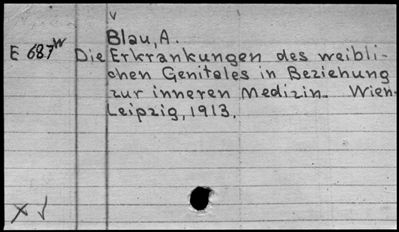 v
Blau, A.
E 687 W Die Erkrankungen des weibli-
chen Genitales in Beziehung
zur inneren Medizin. Wien-
Leipzig, 1913.
X √